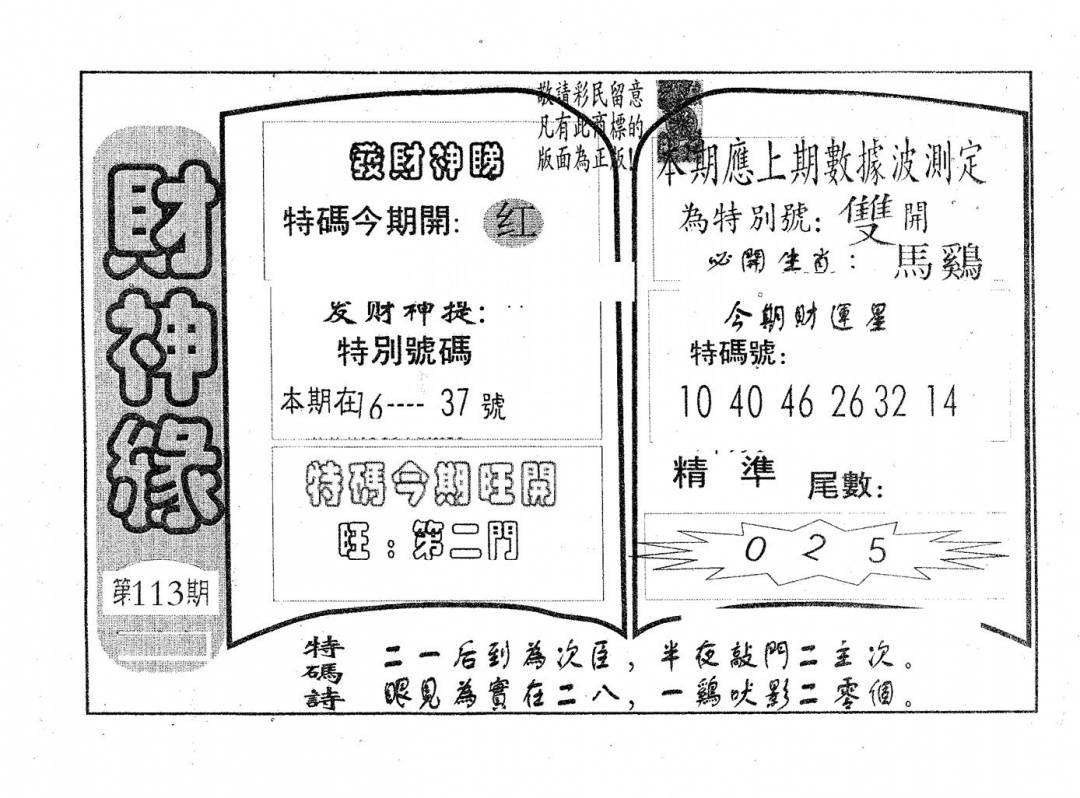 財神緣
第113期
敬請彩民留意
凡有此商標的
版面為正版!
發財神睇
特碼今期開: 红
发财神提:
特別號碼
本期在16----37號
特碼今期旺開
旺:第二門
本期應上期數據波測定
為特別號: 雙開
必開生肖: 馬鷄
今期財運星
特碼號:
10 40 46 26 32 14
精準 尾數:
0 2 5
特碼詩
二一后到為次臣,半夜敲門二主次。
眼見為實在二八,一鷄吠影二零個。